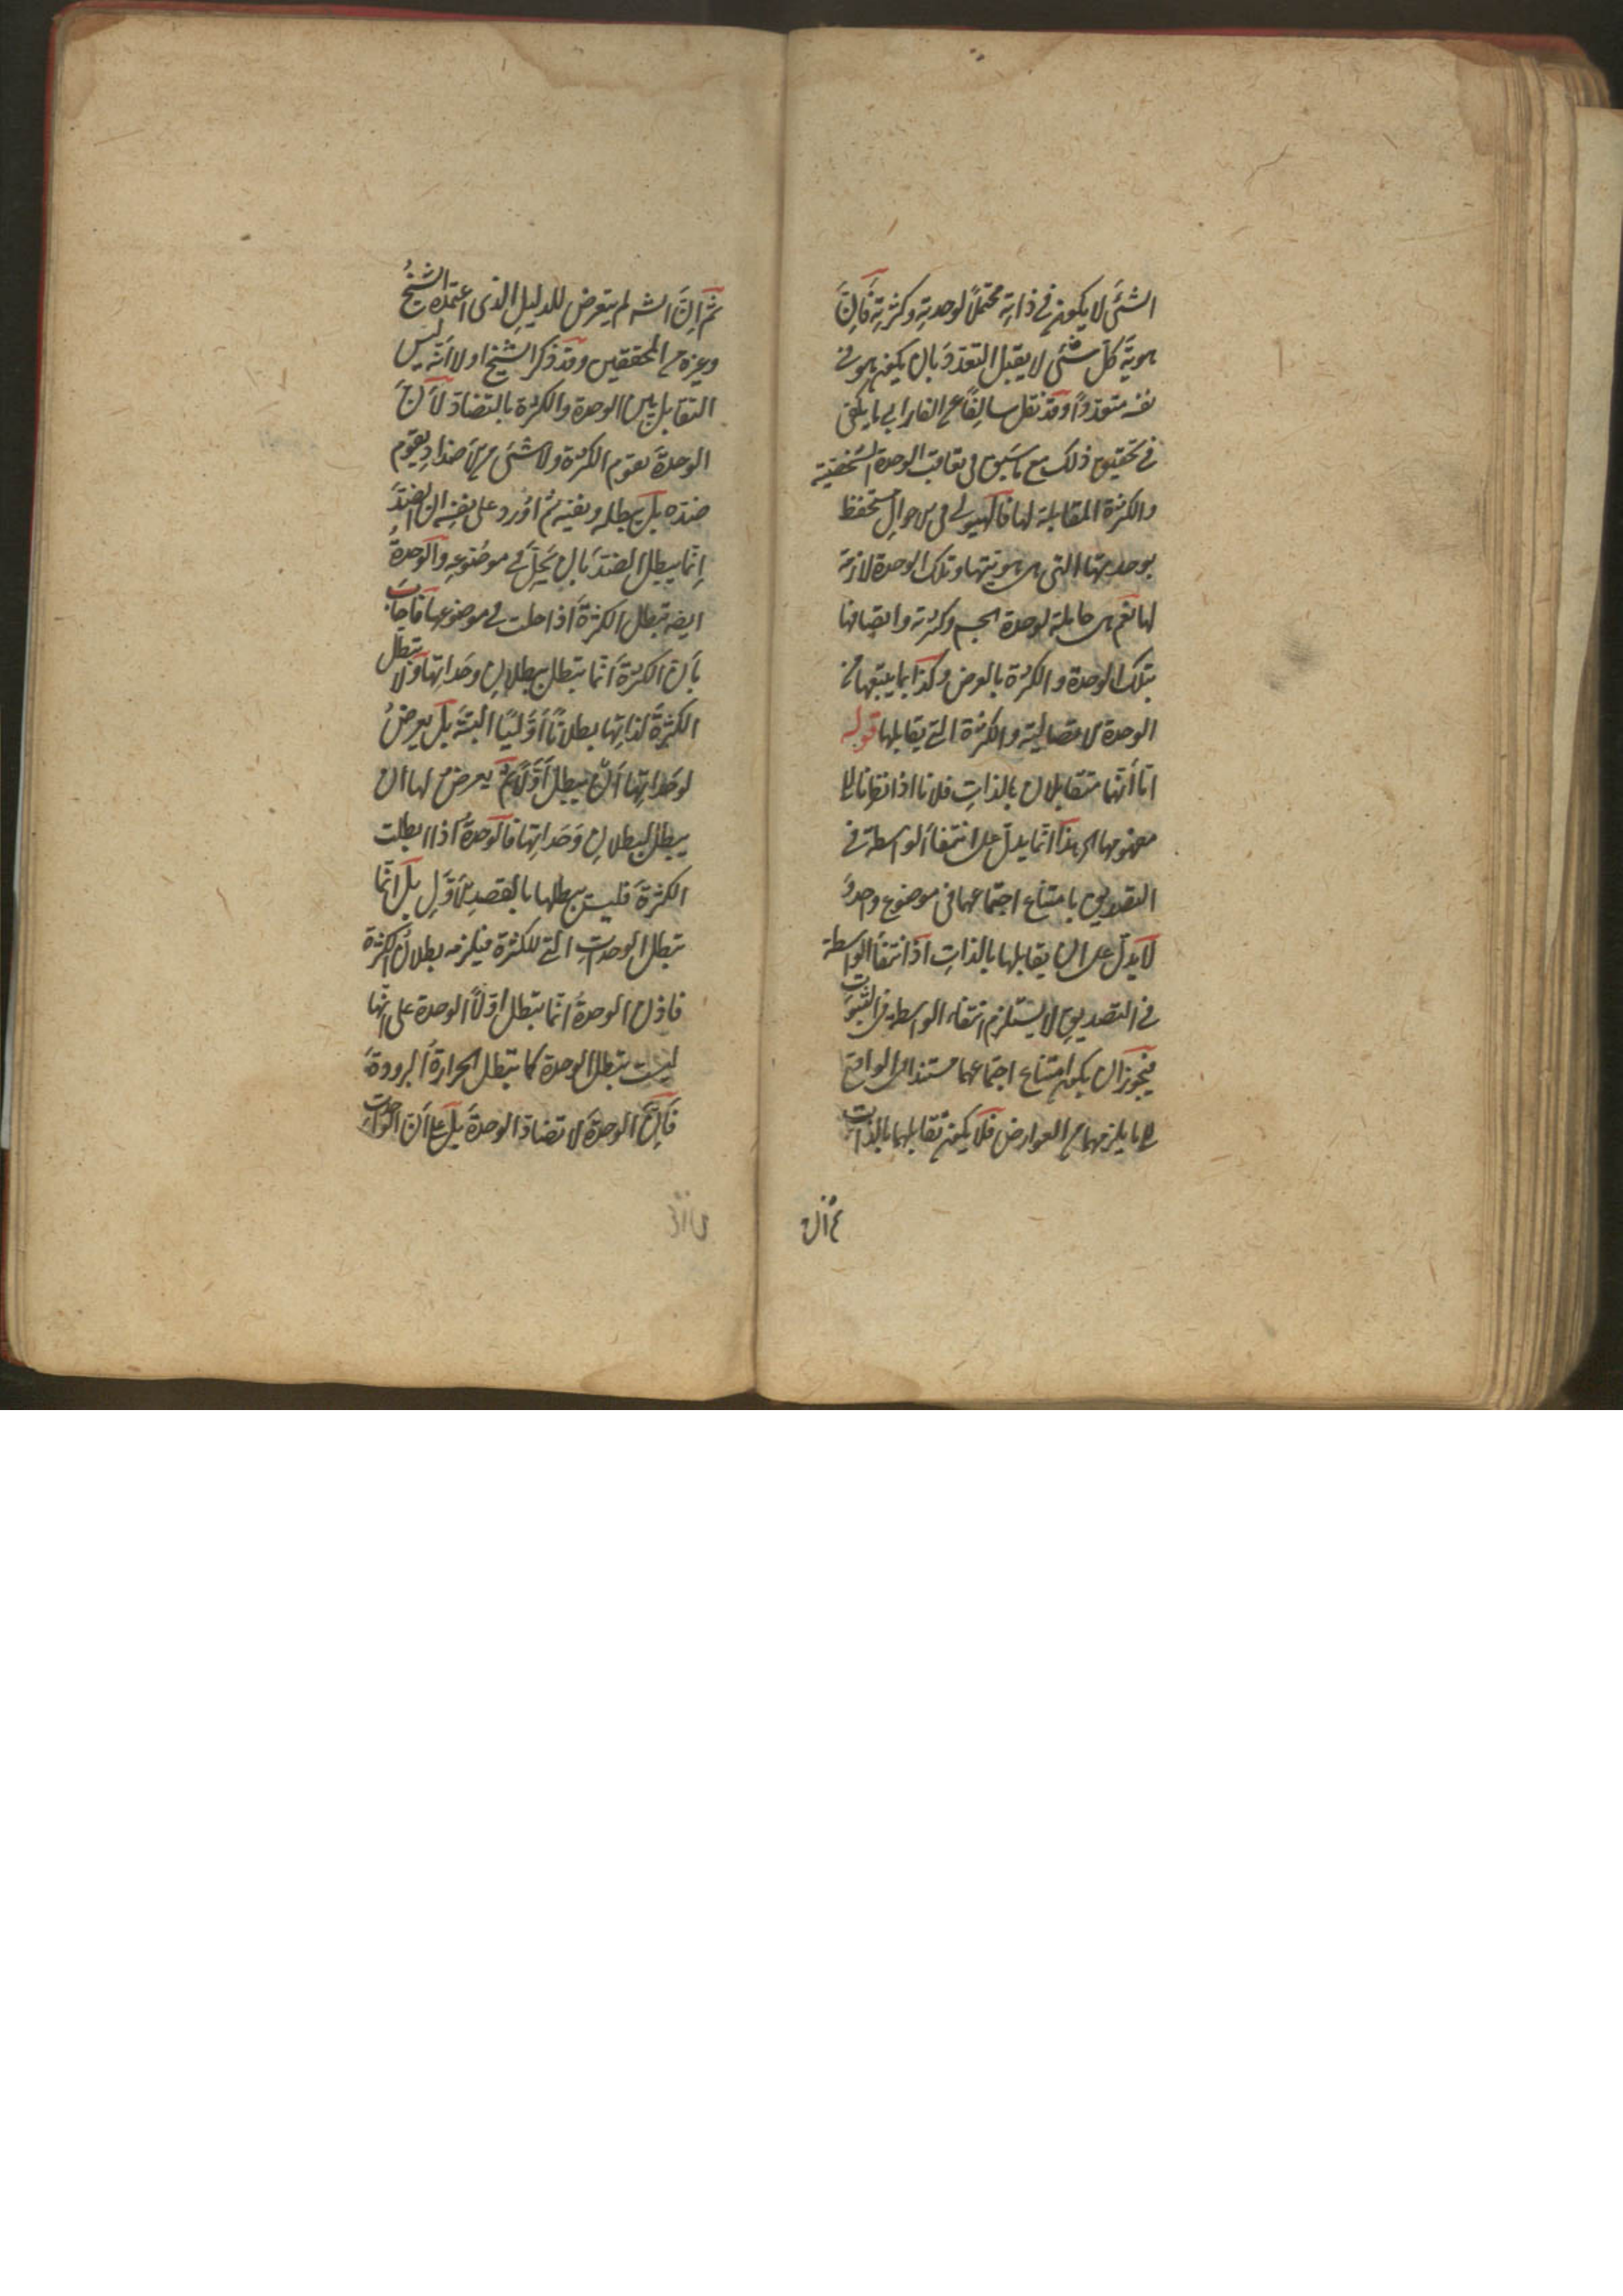 الشئ لا يكون في ذاته محتملاً لوحدته وكثرته فإنّ
هويّة كلّ شئ لا يقبل التعدّد بان يكون هو في
نفسه متعدداً وقد نقل سالفاً عن الفارابي ما يكفي
في تحقيق ذلك مع ما سبق في تعاقب الوحدة الشخصية
والكثرة المقابلة لها فالهيولى في الاحوال مستحفظ
بوحدتها التي هي هويتها وتلك الوحدة لازمة
لها نعم هي حاملة لوحدة الجسم وكثرته واتصافها
بتلك الوحدة والكثرة بالعرض وكذا بما يتبعها من
الوحدة الاتصالية والكثرة التي يقابلها قوله
امّا أنّهما متقابلان بالذات فلانا اذا نظرنا الى
مفهومهما الخ هذا انّما يدلّ على انتفاء الواسطة في
التصديق بامتناع اجتماعهما في موضوع واحد و
لا يدلّ على ان تقابلهما بالذات اذ انتفاء الواسطة
في التصديق لا يستلزم انتفاء الواسطة في الثبوت
فيجوز ان يكون امتناع اجتماعهما مستندا في الواقع
الى ما يلزمهما من العوارض فلا يكون تقابلهما بالذات
ثم ان
ثمّ إنّ الشه لم يتعرض للدليل الذى اعتمده الشيخ
وغيره من المحققين وقد ذكر الشيخ اولا انّه ليس
التقابل بين الوحدة والكثرة بالتضاد لأنّ
الوحدة تقوم الكثرة ولا شئ من الاضداد يقوم
ضدّه بل يبطله وينفيه ثم أورد على نفسه ان الضدّ
إنّما يبطل الضدّ بان يحلّ في موضوعه والوحدة
ايضه تبطل الكثرة اذا حلت في موضوعها فأجاب
بأن الكثرة انّما تبطل ببطلان وحداتها ولا تبطل
الكثرة لذاتها بطلاناً أوّليّاً البتة بل يعرض
لوحداتها أن يبطل أوّلاً ثم يعرض لها ان
يبطل لبطلان وحداتها فالوحدة اذا ابطلت
الكثرة فليست يبطلها بالقصد الأوّل بل انّما
تبطل الوحدات التي للكثرة فيلزمه بطلان الكثرة
فاذن الوحدة انّما تبطل اوّلاً الوحدة على انّها
ليست تبطل الوحدة كما تبطل الحرارة البرودة
فإنّ الوحدة لا تضادّ الوحدة بل على أن الوحدات